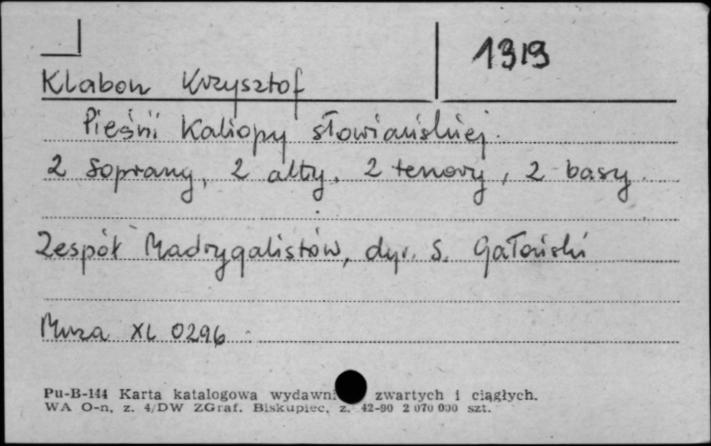 1319
Klabon Krzysztof
Pieśni Kaliopy słowiańskiej.
2 soprany, 2 alty, 2 tenory, 2 basy.
Zespół Madrygalistów, dyr. S. Gałoński
Muza XL 0296
Pu-B-144 Karta katalogowa zwartych i ciągłych.
WA O-n, z. 4/DW ZGraf. Biskupiec, z. 42-90 2 070 000 szt.